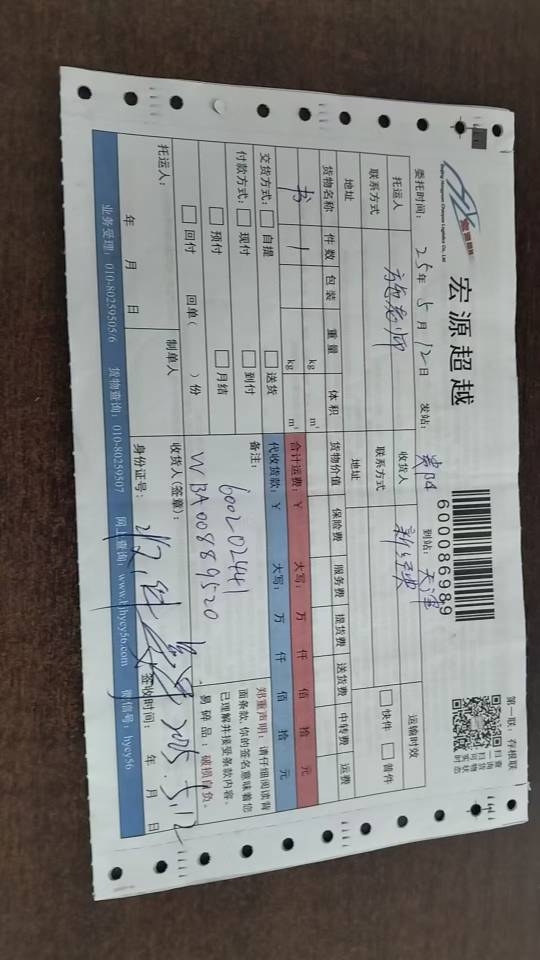 宏源超越
600086989
第一联：存根联
扫查
询货
可物
实状
时态
委托时间：25年5月12日 发站：贵阳 到站：天津
托运人 收货人 运输时效
联系方式 联系方式 快件 普件
地址 地址
货物名称 件数 包装 重量 体积 货物价值 保险费 服务费 提货费 送货费 中转费 运费
书 1 kg m³
kg m³ 合计运费：￥ 大写： 万 仟 佰 拾 元
交货方式： 自提 送货 代收货款：￥ 大写： 万 仟 佰 拾 元
付款方式： 现付 到付 备注： 600202441 郑重声明：请仔细阅读背
预付 月结 WBA00889520 面条款，你的签名意味着您
已理解并接受条款内容。
回付 回单（ ）份 易碎品：破损自负。
托运人： 制单人 收货人(签章)： 2025.5.12
年 月 日 身份证号： 签收时间： 年 月 日
业务受理：010-80259505/6 货物查询：010-80259507 网上查询：www.bjhycy56.com 微信号：hycy56